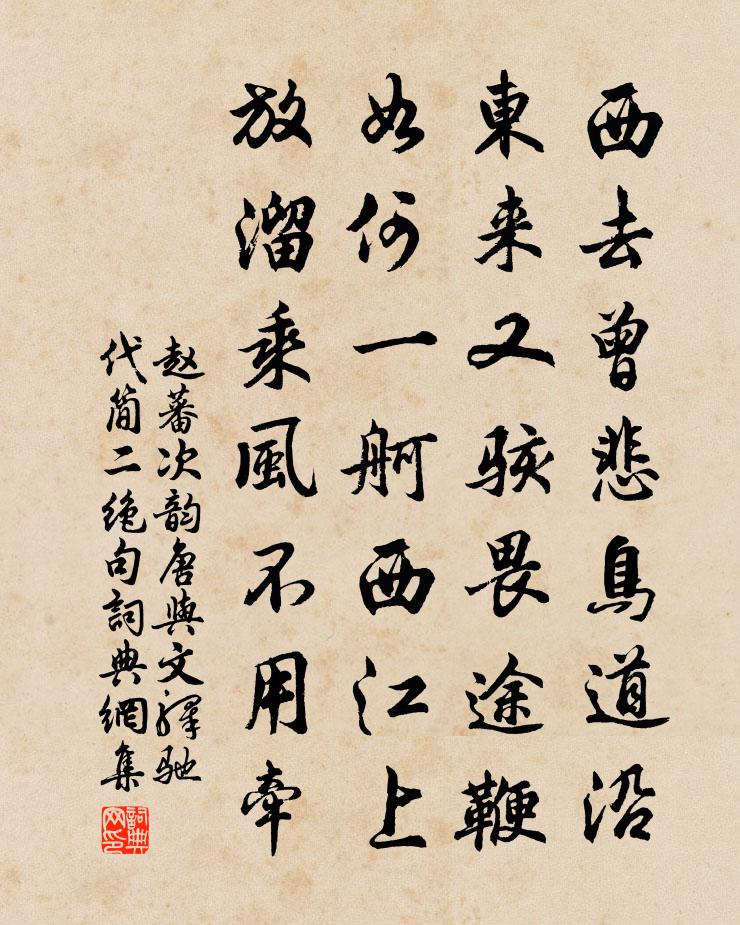 西去曾悲鳥道沿
東来又駭畏途鞭
如何一舸西江上
放溜乘風不用牽
赵蕃次韵唐與文驛馳
代简二绝句詞典網集
詞典网印